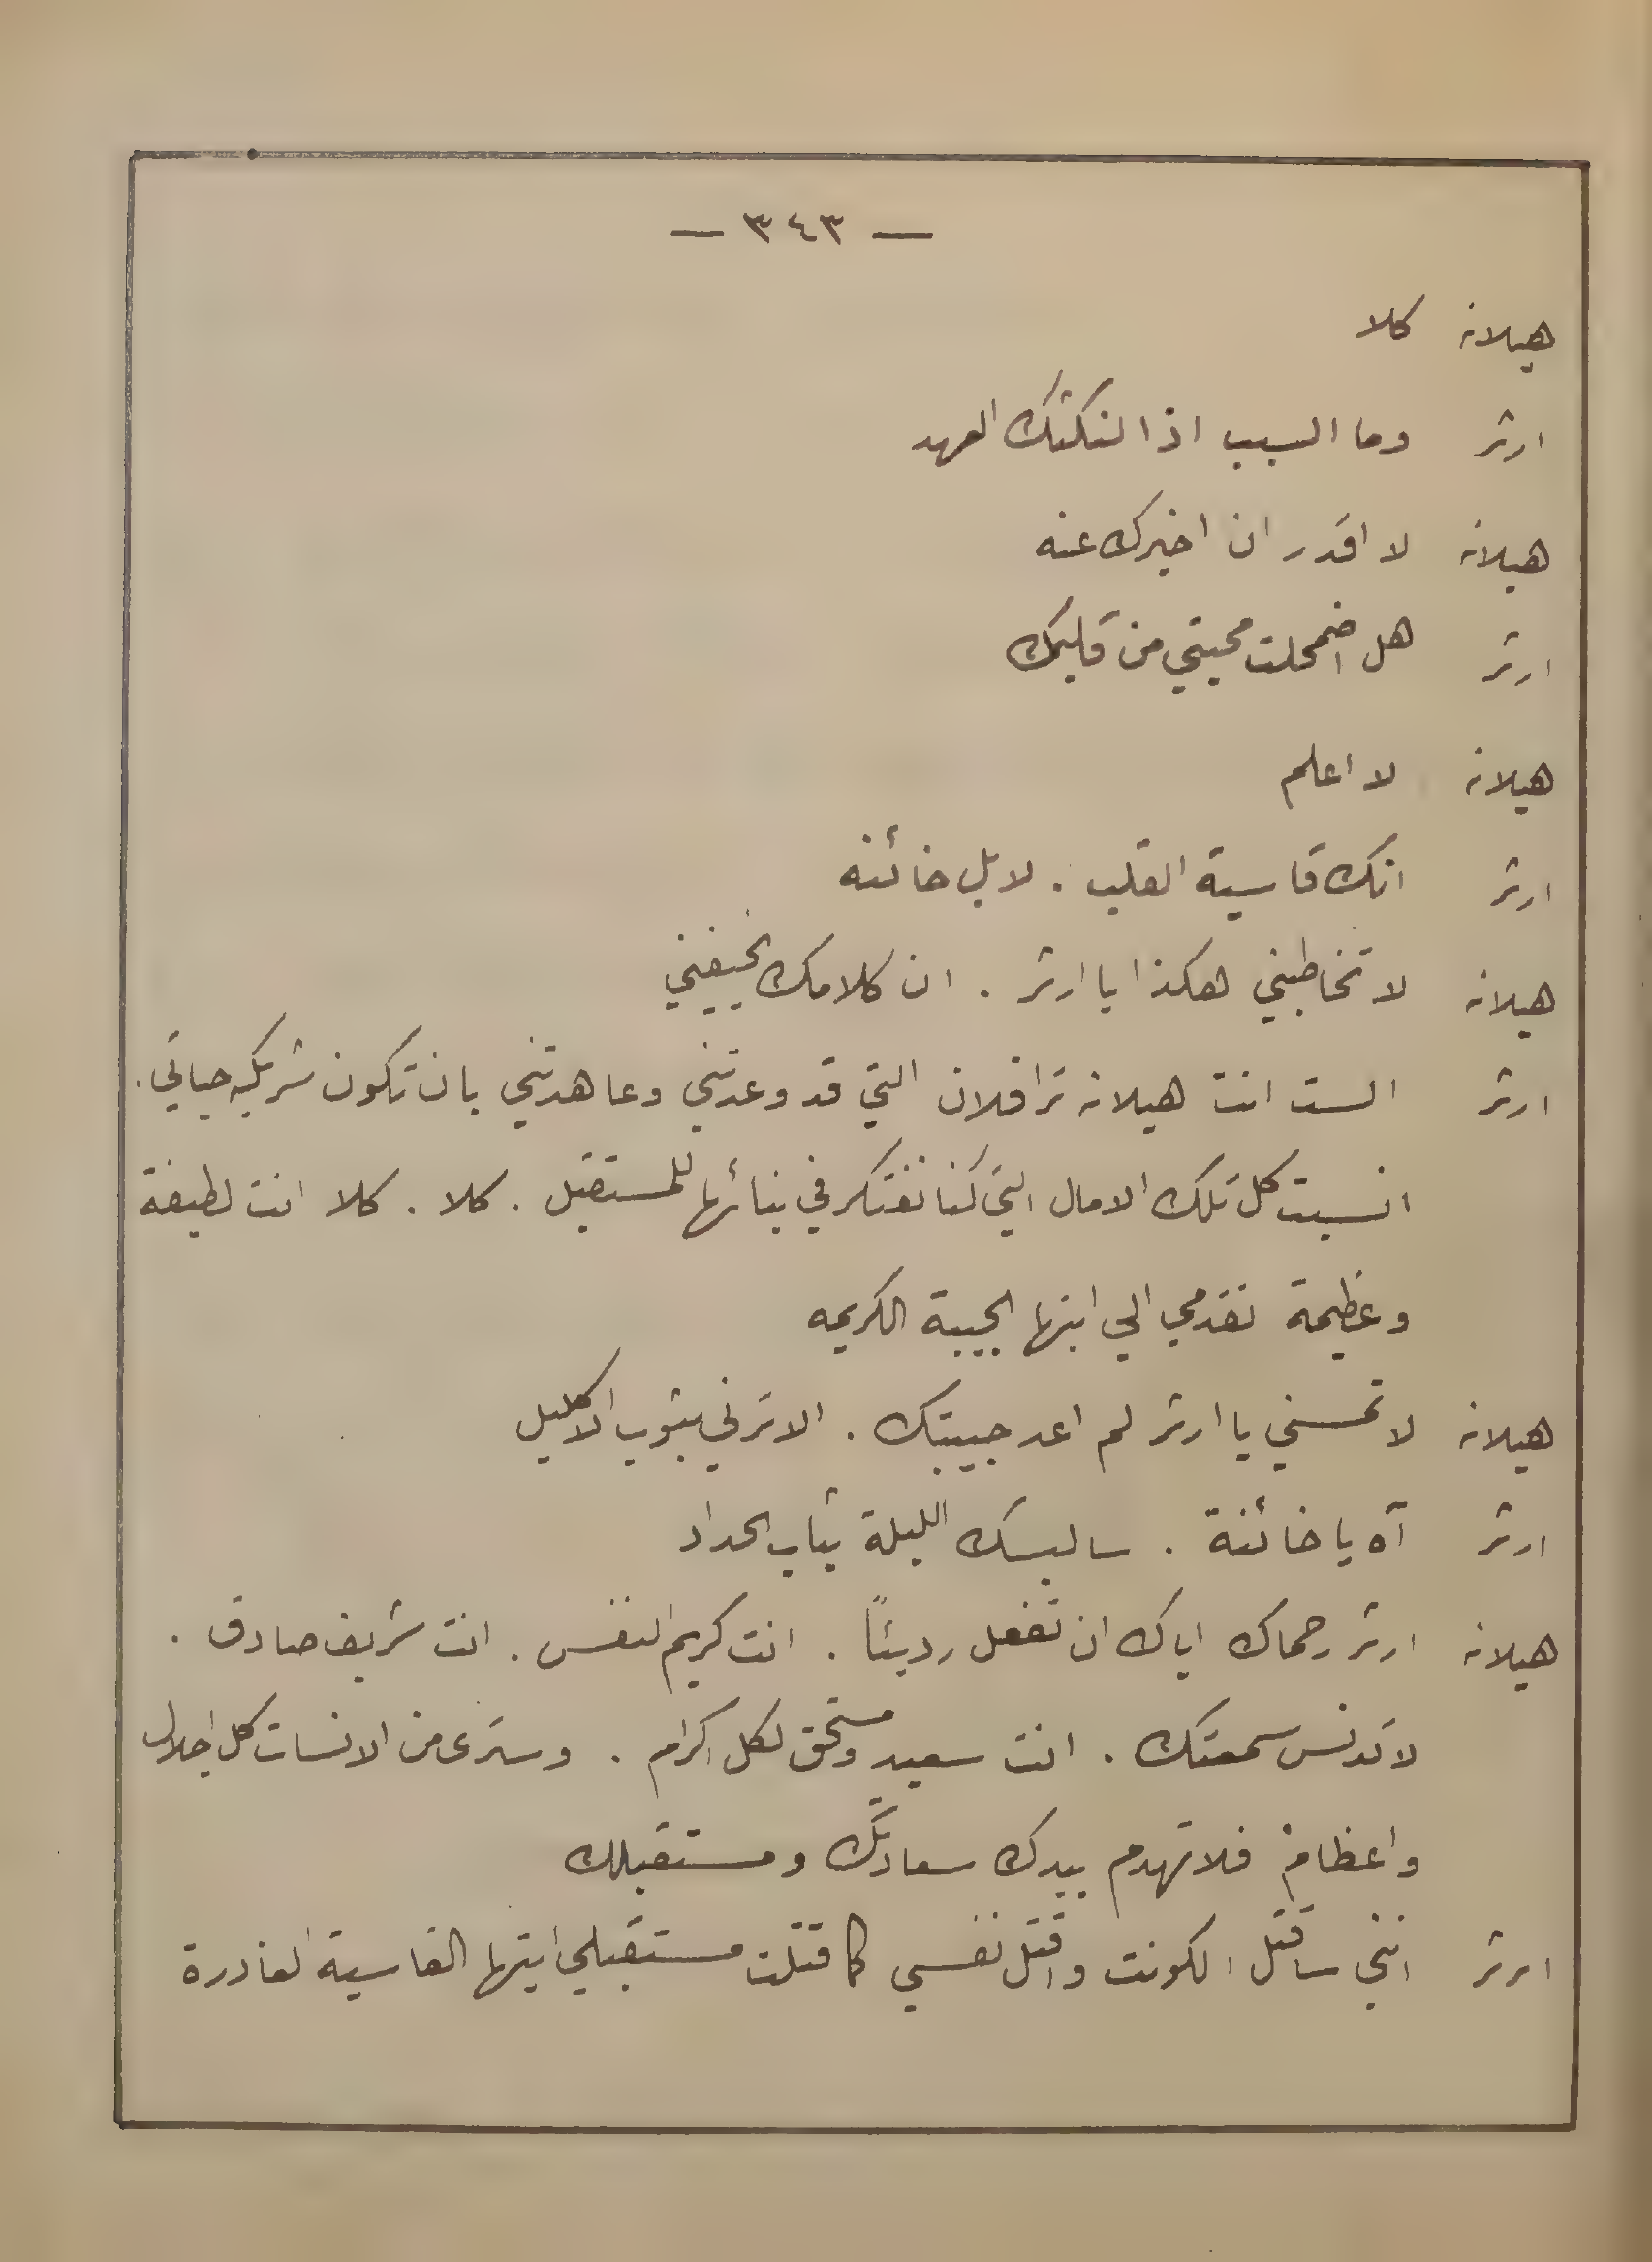 — ٣٤٣ —
هيلانه كلا
ارثر وما السبب اذا لنكثك العهد
هيلانه لا اقدر ان اخبرك عنه
ارثر هل اضمحلت محبتي من قلبك
هيلانه لا اعلم
ارثر انك قاسية القلب . لا بل خائنه
هيلانه لا تخاطبني هكذا يا ارثر . ان كلامك يخيفني
ارثر الست انت هيلانه ترافلان التي قد وعدتني وعاهدتني بان تكون شريكه حياتي .
انسيت كل تلك الامال التي كنا نفتكر في بنائها للمستقبل . كلا . كلا انت لطيفة
وعظيمة تقدمي الي ايتها الحبيبة الكريمه
هيلانه لا تمسني يا ارثر لم اعد حبيبتك . الا ترني بثوب الاكليل
ارثر آه يا خائنة . سالبسك الليلة ثياب الحداد
هيلانه ارثر رحماك اياك ان تفعل رديئاً . انت كريم النفس . انت شريف صادق .
لا تدنس سمعتك . انت سعيد ومستحق لكل اكرام . وسترى من الانسات كل اجلال
واعظام فلا تهدم بيدك سعادتك ومستقبلك
ارثر انني ساقتل الكونت واقتل نفسي كما قتلت مستقبلي ايتها القاسية الغادرة